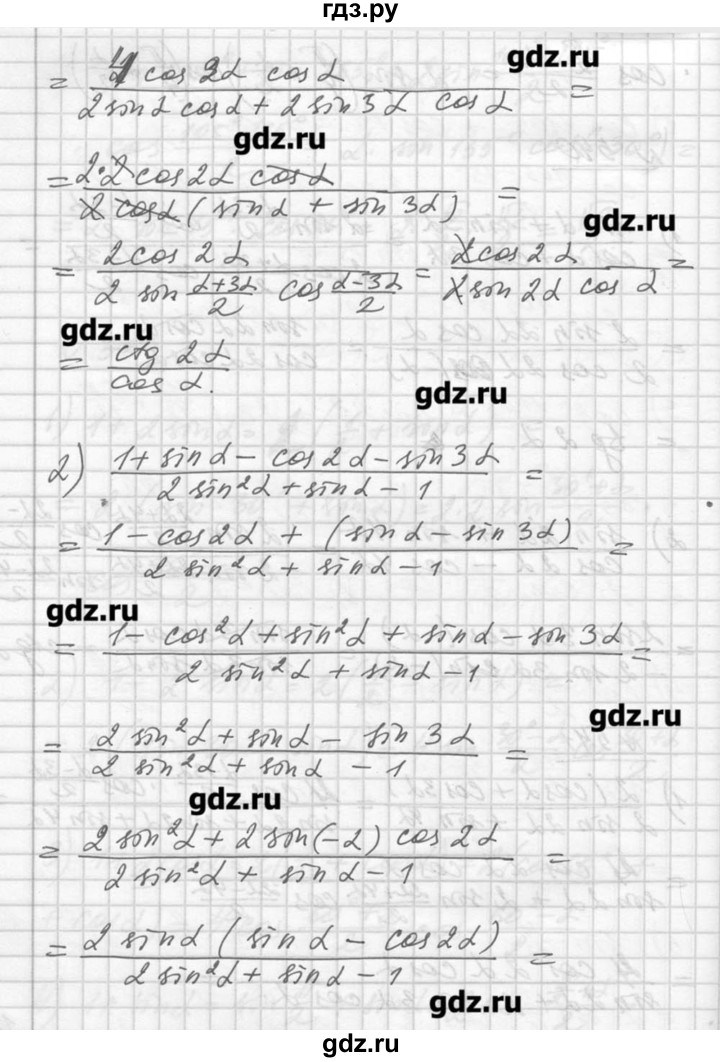 гдз.ру
gdz.ru
= 4 cos 2α cos α / 2 sin α cos α + 2 sin 3α cos α =
gdz.ru
= 2·2 cos 2α cos α / 2 cos α (sin α + sin 3α) =
gdz.ru
= 2 cos 2α / 2 sin α+3α/2 cos α-3α/2 = 2 cos 2α / 2 sin 2α cos α =
gdz.ru
= ctg 2α / cos α.
gdz.ru
2) 1 + sin α - cos 2α - sin 3α / 2 sin²α + sin α - 1 =
= 1 - cos 2α + (sin α - sin 3α) / 2 sin²α + sin α - 1 =
gdz.ru
= 1 - cos²α + sin²α + sin α - sin 3α / 2 sin²α + sin α - 1 =
gdz.ru
= 2 sin²α + sin α - sin 3α / 2 sin²α + sin α - 1 =
gdz.ru
= 2 sin²α + 2 sin(-2) cos 2α / 2 sin²α + sin α - 1 =
= 2 sin α (sin α - cos 2α) / 2 sin²α + sin α - 1 =
gdz.ru
гдз.ру